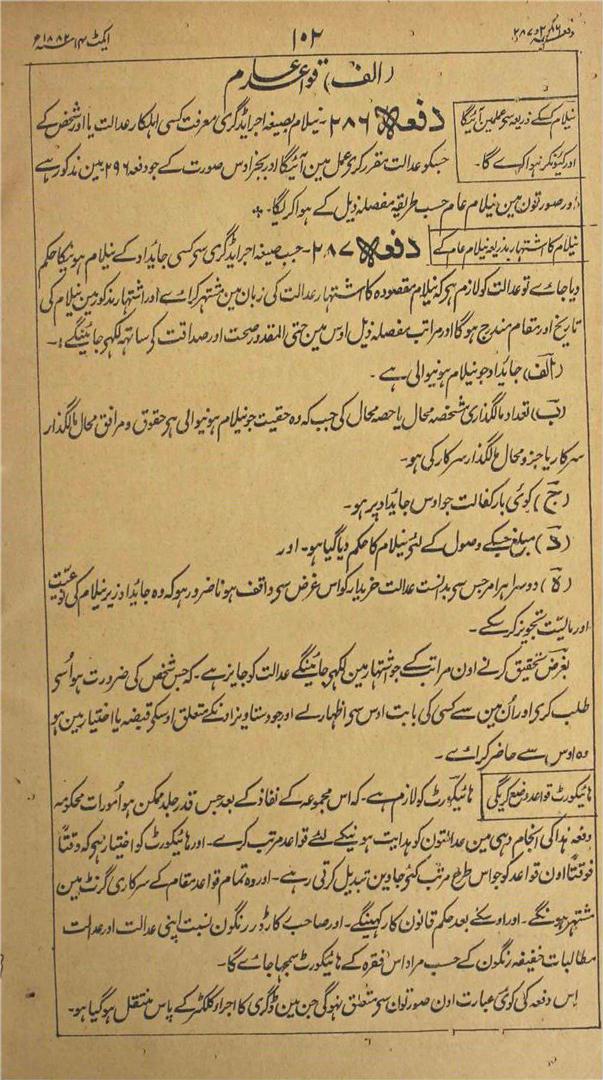 ایکٹ ۱۴ سنہ ۱۸۸۲ع
۱۰۲
دفعہ ۲۸۶ و ۲۸۷
(الف) قواعد عام
نیلام کسکے ذریعہ سے عملمین آئیگا
اور کیونکر ہوا کرے گا۔
دفعہ ۲۸۶۔ نیلام بصیغہ اجراے ڈگری معرفت کسی اہلکار عدالت یا اور شخص کے
جسکو عدالت مقرر کرے عمل مین آئیگا اور بجز اوس صورت کے جو دفعہ ۲۹۶ مین مذکور ہے
اور صورتون مین نیلام عام حسب طریقہ مفصلہ ذیل کے ہوا کریگا۔
نیلام کا اشتہار بذریعہ نیلام عام کے
دفعہ ۲۸۷۔ جب صیغہ اجراے ڈگری سے کسی جایداد کے نیلام ہونیکا حکم
دیا جاے تو عدالت کو لازم ہے کہ نیلام مقصودہ کا اشتہار عدالت کی زبان مین مشتہر کراے اور اشتہار مذکور مین نیلام کی
تاریخ اور مقام مندرج ہوگا اور مراتب مفصلہ ذیل اوس مین حتی المقدور صحت اور صداقت کے ساتہہ لکہے جائینگے۔
(الف) جایداد جو نیلام ہونیوالی ہے۔
(ب) تعداد مالگذاری مشخصہ محال یا حصہ محال کی جب کہ وہ حقیت جو نیلام ہونیوالی ہے حقوق و مرافق محال مالگذار
سرکار یا جزو محال مالگذار سرکار کی ہو۔
(ج) کوئی بار کفالت جو اوس جایداد پر ہو۔
(د) مبلغ جسکے وصول کے لئے نیلام کا حکم دیا گیا ہو۔ اور
(ہ) دوسرا ہر امر جس سے بدانست عدالت خریدار کو اس غرض سے واقف ہونا ضرور ہو کہ وہ جایداد زیر نیلام کی نوعیت
اور مالیت تجویز کر سکے۔
بغرض تحقیق کرنے اون مراتب کے جو اشتہار مین لکہے جائینگے عدالت کو جایز ہے۔ کہ جس شخص کی ضرورت ہو اُسے
طلب کرے اور اُن مین سے کسی کی بابت اوس سے اظہار لے اور جو دستاویز اونکے متعلق اوسکے قبضہ یا اختیار مین ہو
وہ اوس سے حاضر کراے۔
ہائیکورٹ قواعد وضع کریگی
ہائیکورٹ کو لازم ہے۔ کہ اس مجموعہ کے نفاذ کے بعد جس قدر جلد ممکن ہو اُمورات محکومہ
دفعہ ہذا کی انجام دہی مین عدالتون کو ہدایت ہونیکے لئے قواعد مرتب کرے۔ اور ہائیکورٹ کو اختیار ہے کہ وقتاً
فوقتاً اون قواعد کو جو اس طرح مرتب کئے جاوین تبدیل کرتی رہے۔ اور وہ تمام قواعد مقام کے سرکاری گزٹ مین
مشتہر ہونگے۔ اور اوسکے بعد حکم قانون کا رکہینگے۔ اور صاحب رکارڈر رنگون نسبت اپنی عدالت اور عدالت
مطالبات خفیفہ رنگون کے حسب مراد اس فقرہ کے ہائیکورٹ سمجہا جاے گا۔
اِس دفعہ کی کوئی عبارت اون صورتون سے متعلق نہوگی جن مین ڈگری کا اجرا کلکٹر کے پاس منتقل ہو گیا ہو۔